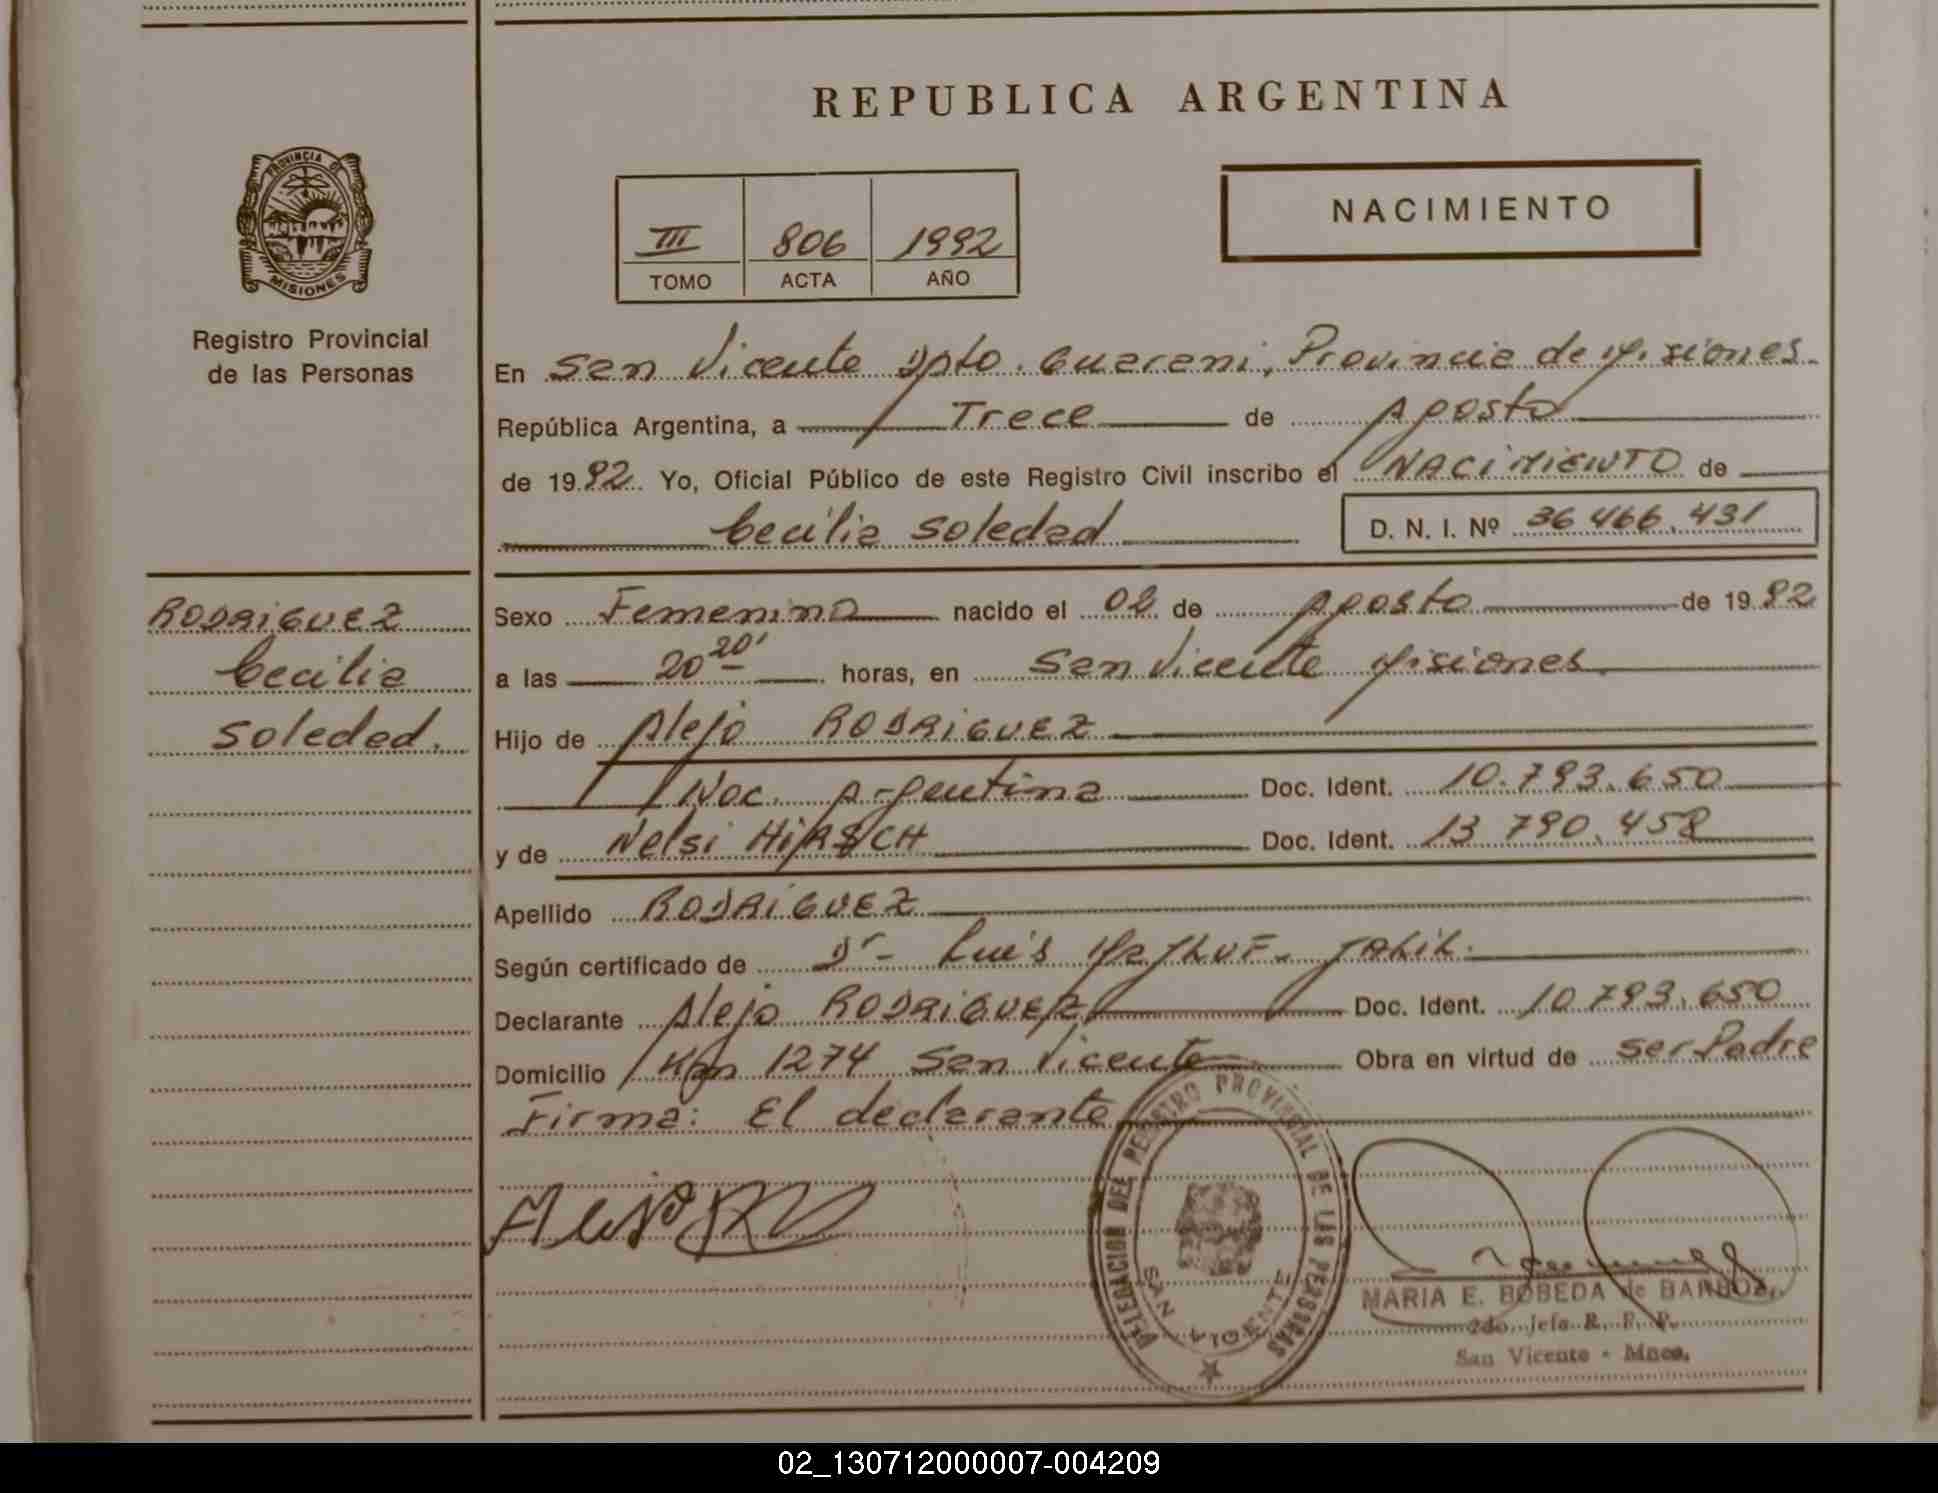 REPUBLICA ARGENTINA
PROVINCIA DE
MISIONES
Registro Provincial
de las Personas
III 806 1992
TOMO ACTA AÑO
NACIMIENTO
En San Vicente Dpto. Guarani, Provincia de Misiones
República Argentina, a Trece de Agosto
de 1992 Yo, Oficial Público de este Registro Civil inscribo el NACIMIENTO de
Cecilia Soledad D. N. I. Nº 36 466.431
RODRIGUEZ
Cecilia
Soledad.
Sexo Femenino nacido el 02 de Agosto de 1992
a las 20 20' horas, en San Vicente Misiones.
Hijo de Alejo RODRIGUEZ
Nac. Argentina Doc. Ident. 10.793.650
y de Nelsi HIRSCH Doc. Ident. 13 790.458
Apellido RODRIGUEZ
Según certificado de Dr- Luis
Declarante Alejo RODRIGUEZ Doc. Ident. 10 793.650
Domicilio Km 1274 San Vicente Obra en virtud de ser Padre
Firma: El declarante
DELEGACION DEL REGISTRO PROVINCIAL DE LAS PERSONAS
SAN VICENTE
MARIA E. BOBEDA de BARBOZA
2do. Jefe R. P. P.
San Vicente - Mnes.
02_130712000007-004209